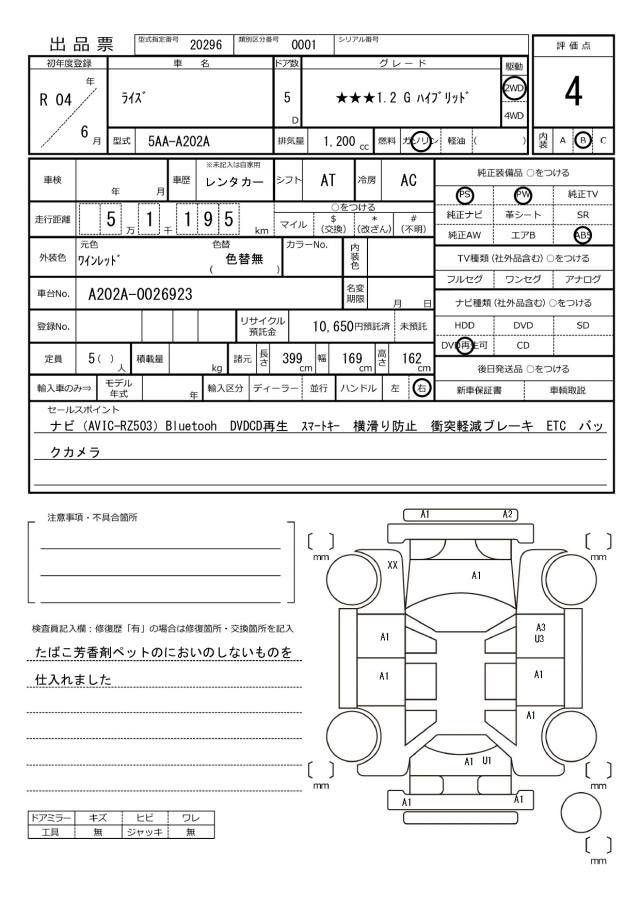 出品票 型式指定番号 20296 類別区分番号 0001 シリアル番号
初年度登録 車名 ドア数 グレード 駆動 評価点
R 04 年 6 月 ﾗｲｽﾞ 5 D ★★★1.2 G ﾊｲﾌﾞﾘｯﾄﾞ 2WD 4WD 4
型式 5AA-A202A 排気量 1,200 cc 燃料 ガソリン 軽油 ( ) 内装 A B C
車検 年 月 車歴 ※未記入は自家用 レンタカー シフト AT 冷房 AC
走行距離 5 万 1 千 195 km ○をつける マイル $ (交換) * (改ざん) # (不明)
外装色 元色 ﾜｲﾝﾚｯﾄﾞ 色替 ( 色替無 ) カラーNo. 内装色
車台No. A202A-0026923 名変期限 月 日
登録No. リサイクル預託金 10,650円預託済 未預託
定員 5 ( ) 人 積載量 kg 諸元 長さ 399 cm 幅 169 cm 高さ 162 cm
輸入車のみ⇒ モデル年式 年 輸入区分 ディーラー 並行 ハンドル 左 右
純正装備品 ○をつける
PS PW 純正TV
純正ナビ 革シート SR
純正AW エアB ABS
TV種類 (社外品含む) ○をつける
フルセグ ワンセグ アナログ
ナビ種類 (社外品含む) ○をつける
HDD DVD SD
DVD再生可 CD
後日発送品 ○をつける
新車保証書 車輌取説
セールスポイント
ナビ (AVIC-RZ503) Bluetooh DVDCD再生 ｽﾏｰﾄｷｰ 横滑り防止 衝突軽減ブレーキ ETC バッ
クカメラ
注意事項・不具合箇所
検査員記入欄：修復歴「有」の場合は修復箇所・交換箇所を記入
たばこ芳香剤ペットのにおいのしないものを
仕入れました
ドアミラー キズ ヒビ ワレ
工具 無 ジャッキ 無
A1 A2
mm mm
XX A1
A1 A3
U3
A1 A1
A1
A1 U1
mm mm
A1 A1
mm